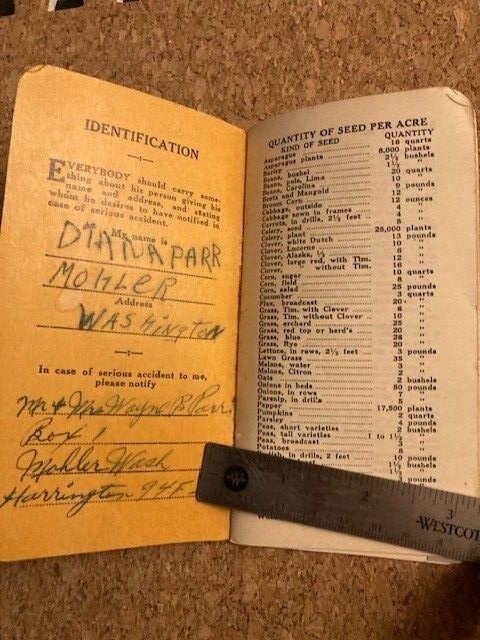 IDENTIFICATION
EVERYBODY should carry some-
thing about his person giving his
name and address, and stating
whom he desires to have notified in
case of serious accident.
My name is
DIANA PARR
MOHLER
Address
WASHINGTON
In case of serious accident to me,
please notify
Mr & Mrs Wayne B Parr
Box 1
Mohler Wash
Harrington 94F
QUANTITY OF SEED PER ACRE
KIND OF SEED QUANTITY
Asparagus 16 quarts
Asparagus plants 8,000 plants
Barley 2½ bushels
Beans, bushel 1½ "
Beans, pole, Lima 20 quarts
Beans, Carolina 10 "
Beets and Mangold 9 pounds
Broom Corn 12 "
Cabbage, outside 12 ounces
Cabbage sown in frames 4 "
Carrots, in drills, 2½ feet 4 "
Celery, seed 8 "
Celery, plant 25,000 plants
Clover, white Dutch 13 pounds
Clover, Lucerne 10 "
Clover, Alsaika, ½ 6 "
Clover, large red, with Tim. 12 "
Clover, " without Tim. 16 "
Corn, sugar 10 quarts
Corn, field 8 "
Corn, salad 25 pounds
Cucumber 3 quarts
Flax, broadcast 20 "
Grass, Tim. with Clover 6 "
Grass, Tim. without Clover 10 "
Grass, orchard 25 "
Grass, red top or herd's 20 "
Grass, blue 28 "
Grass, Rye 20 "
Lettuce, in rows, 2½ feet 3 pounds
Lawn Grass 35 "
Melons, water 3 "
Melons, Citron 2 "
Oats 2 bushels
Onions in beds 50 pounds
Onions, in rows 7 "
Parsnip, in drills 5 "
Pepper 17,500 plants
Pumpkins 2 quarts
Parsley 4 pounds
Peas, short varieties 2 bushels
Peas, tall varieties 1 to 1½ "
Peas, broadcast 3 "
Potatoes 8 "
in drills, 2 feet 10 pounds
1½ bushels
1½ "
3 pounds
W
1
2
3
WESTCOT